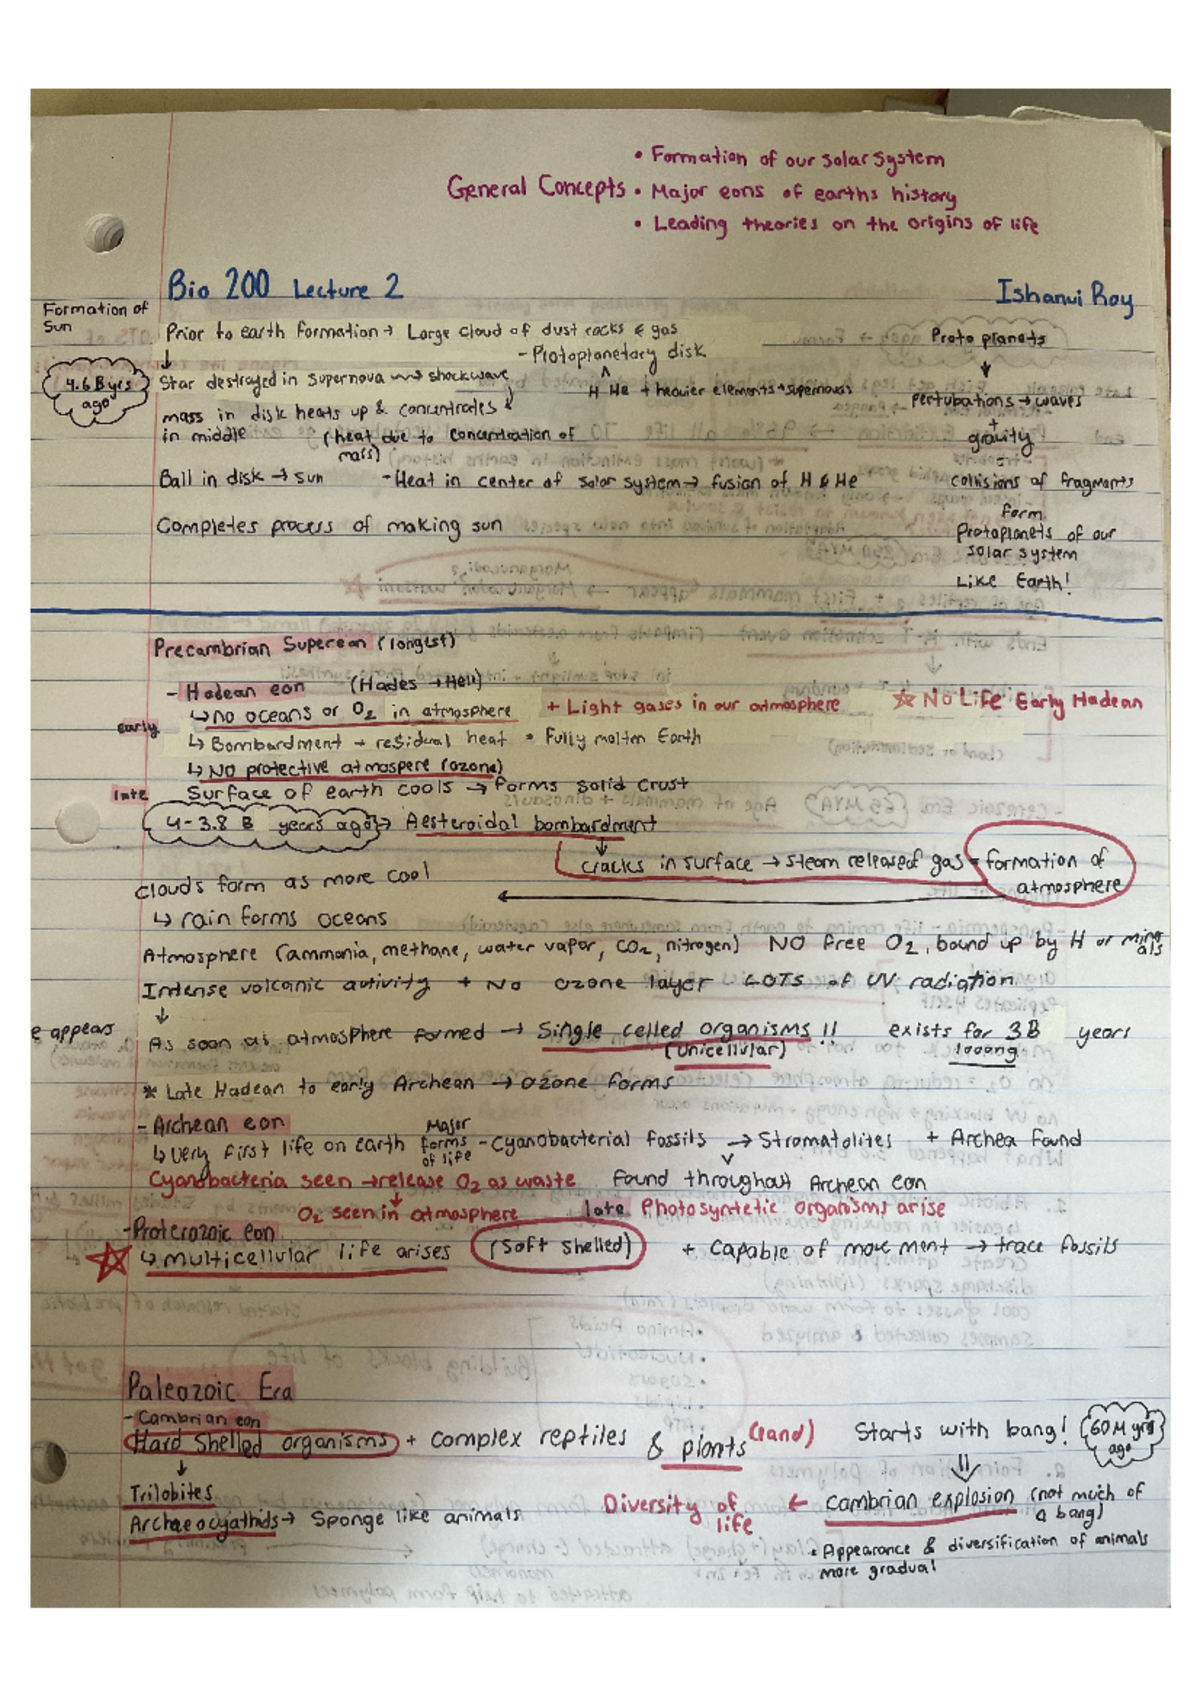 • Formation of our solar system
General Concepts • Major eons of earths history
• Leading theories on the origins of life
Bio 200 Lecture 2
Ishanvi Roy
Formation of Sun
Prior to earth formation → Large cloud of dust rocks & gas
- Protoplanetary disk
H He + heavier elements → supernovas
4.6 B yrs ago
Star destroyed in supernova → shockwave
mass in disk heats up & concentrates
in middle (heat due to concentration of mass)
Ball in disk → sun - Heat in center of solar system → fusion of H & He
Completes process of making sun
Proto planets
↓
Pertubations → waves
+
gravity
=
collisions of fragments
form
Protoplanets of our
solar system
Like Earth!
Precambrian Supereon (longest)
- Hadean eon (Hades → Hell)
early
↳ no oceans or O2 in atmosphere + Light gases in our atmosphere ☆ No Life Early Hadean
↳ Bombardment + residual heat = Fully molten Earth
↳ No protective atmospere (ozone)
late Surface of earth cools → forms solid crust
4-3.8 B years ago → Aesteroidal bombardment
↓
cracks in surface → steam released of gas = formation of atmosphere
Clouds form as more cool ←
↳ rain forms oceans
Atmosphere (ammonia, methane, water vapor, CO2, nitrogen) NO free O2, bound up by H or minerals
Intense volcanic activity + No ozone layer LOTS of UV radiation
↓
e appears
As soon as atmosphere formed → Single celled organisms!! exists for 3B years
(Unicellular) looong
* Late Hadean to early Archean → ozone forms
- Archean eon
↳ very first life on earth Major forms of life - Cyanobacterial fossils → Stromatolites + Archea found
Cyanobacteria seen → release O2 as waste found throughout Archean eon
↓
O2 seen in atmosphere late Photosyntetic organisms arise
- Proterozoic eon
☆ ↳ multicellular life arises (soft shelled) + capable of movement → trace fossils
Paleozoic Era
- Cambrian eon
Hard Shelled organisms + complex reptiles & plants (land) Starts with bang! 60 M yrs ago
↓
Trilobites
Diversity of life ← cambrian explosion (not much of a bang)
Archaeocyathids → Sponge like animals
• Appearance & diversification of animals
more gradual